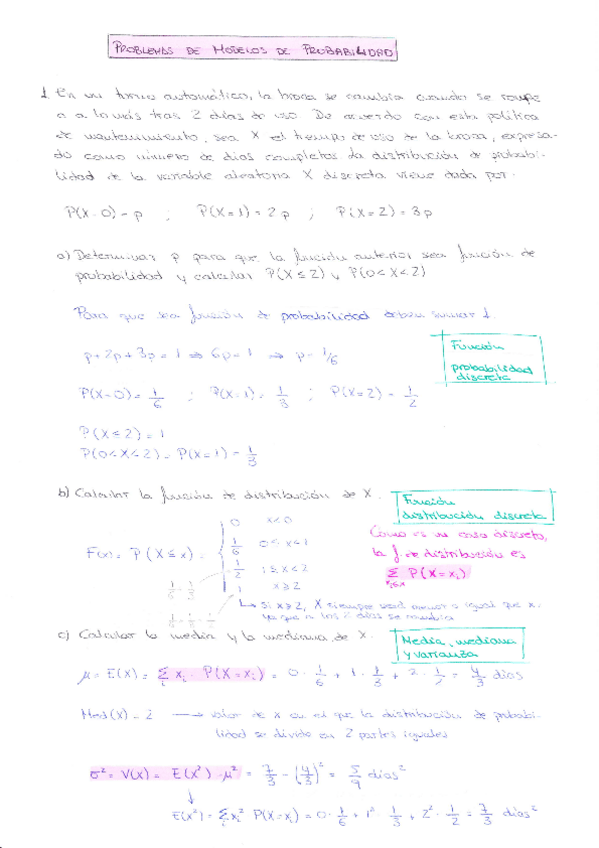 PROBLEMAS DE MODELOS DE PROBABILIDAD
1. En un torno automático, la broca se cambia cuando se rompe
o a lo más tras 2 días de uso. De acuerdo con esta política
de mantenimiento, sea X el tiempo de uso de la broca, expresa-
do como número de días completos. La distribución de probabi-
lidad de la variable aleatoria X discreta viene dada por:
P(X=0)=p ; P(X=1)=2p ; P(X=2)=3p
a) Determinar p para que la función anterior sea función de
probabilidad y calcular P(X≤2) y P(0<X<2)
Para que sea función de probabilidad deben sumar 1.
p+2p+3p=1 ⇒ 6p=1 ⇒ p=1/6
Función
probabilidad
discreta
P(X=0)=1/6 ; P(X=1)=1/3 ; P(X=2)=1/2
P(X≤2)=1
P(0<X<2)=P(X=1)=1/3
b) Calcular la función de distribución de X.
Función
distribución discreta
F(x)=P(X≤x)=
0 x<0
1/6 0≤x<1
1/2 1≤x<2
1 x≥2
Como es un caso discreto,
la f. de distribución es
Σ P(X=xi)
xi≤x
↳ si x≥2, X siempre será menor o igual que x,
ya que a los 2 días se cambia
c) Calcular la media y la mediana de X.
Media, mediana
y varianza
μ=E(X)=Σ xi·P(X=xi)=0·1/6+1·1/3+2·1/2=4/3 días
Med(X)=2 → valor de x en el que la distribución de probabi-
lidad se divide en 2 partes iguales
σ²=V(X)=E(X²)-μ²=7/3-(4/3)²=5/9 días²
↓
E(X²)=Σxi² P(X=xi)=0·1/6+1²·1/3+2²·1/2=7/3 días²